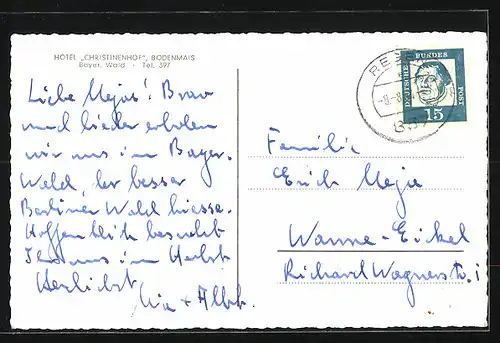 HOTEL „CHRISTINENHOF", BODENMAIS
Bayer. Wald · Tel. 397
Liebe Mejas! Brav
und bieder erholen
wir uns im Bayer.
Wald, der besser
Berliner Wald hiesse.
Hoffentlich besucht
Ihr uns im Herbst
Herzlichst
+
DEUTSCHE BUNDESPOST
15
Familie
Erich Meja
Wanne-Eickel
Richard Wagnerstr. 1